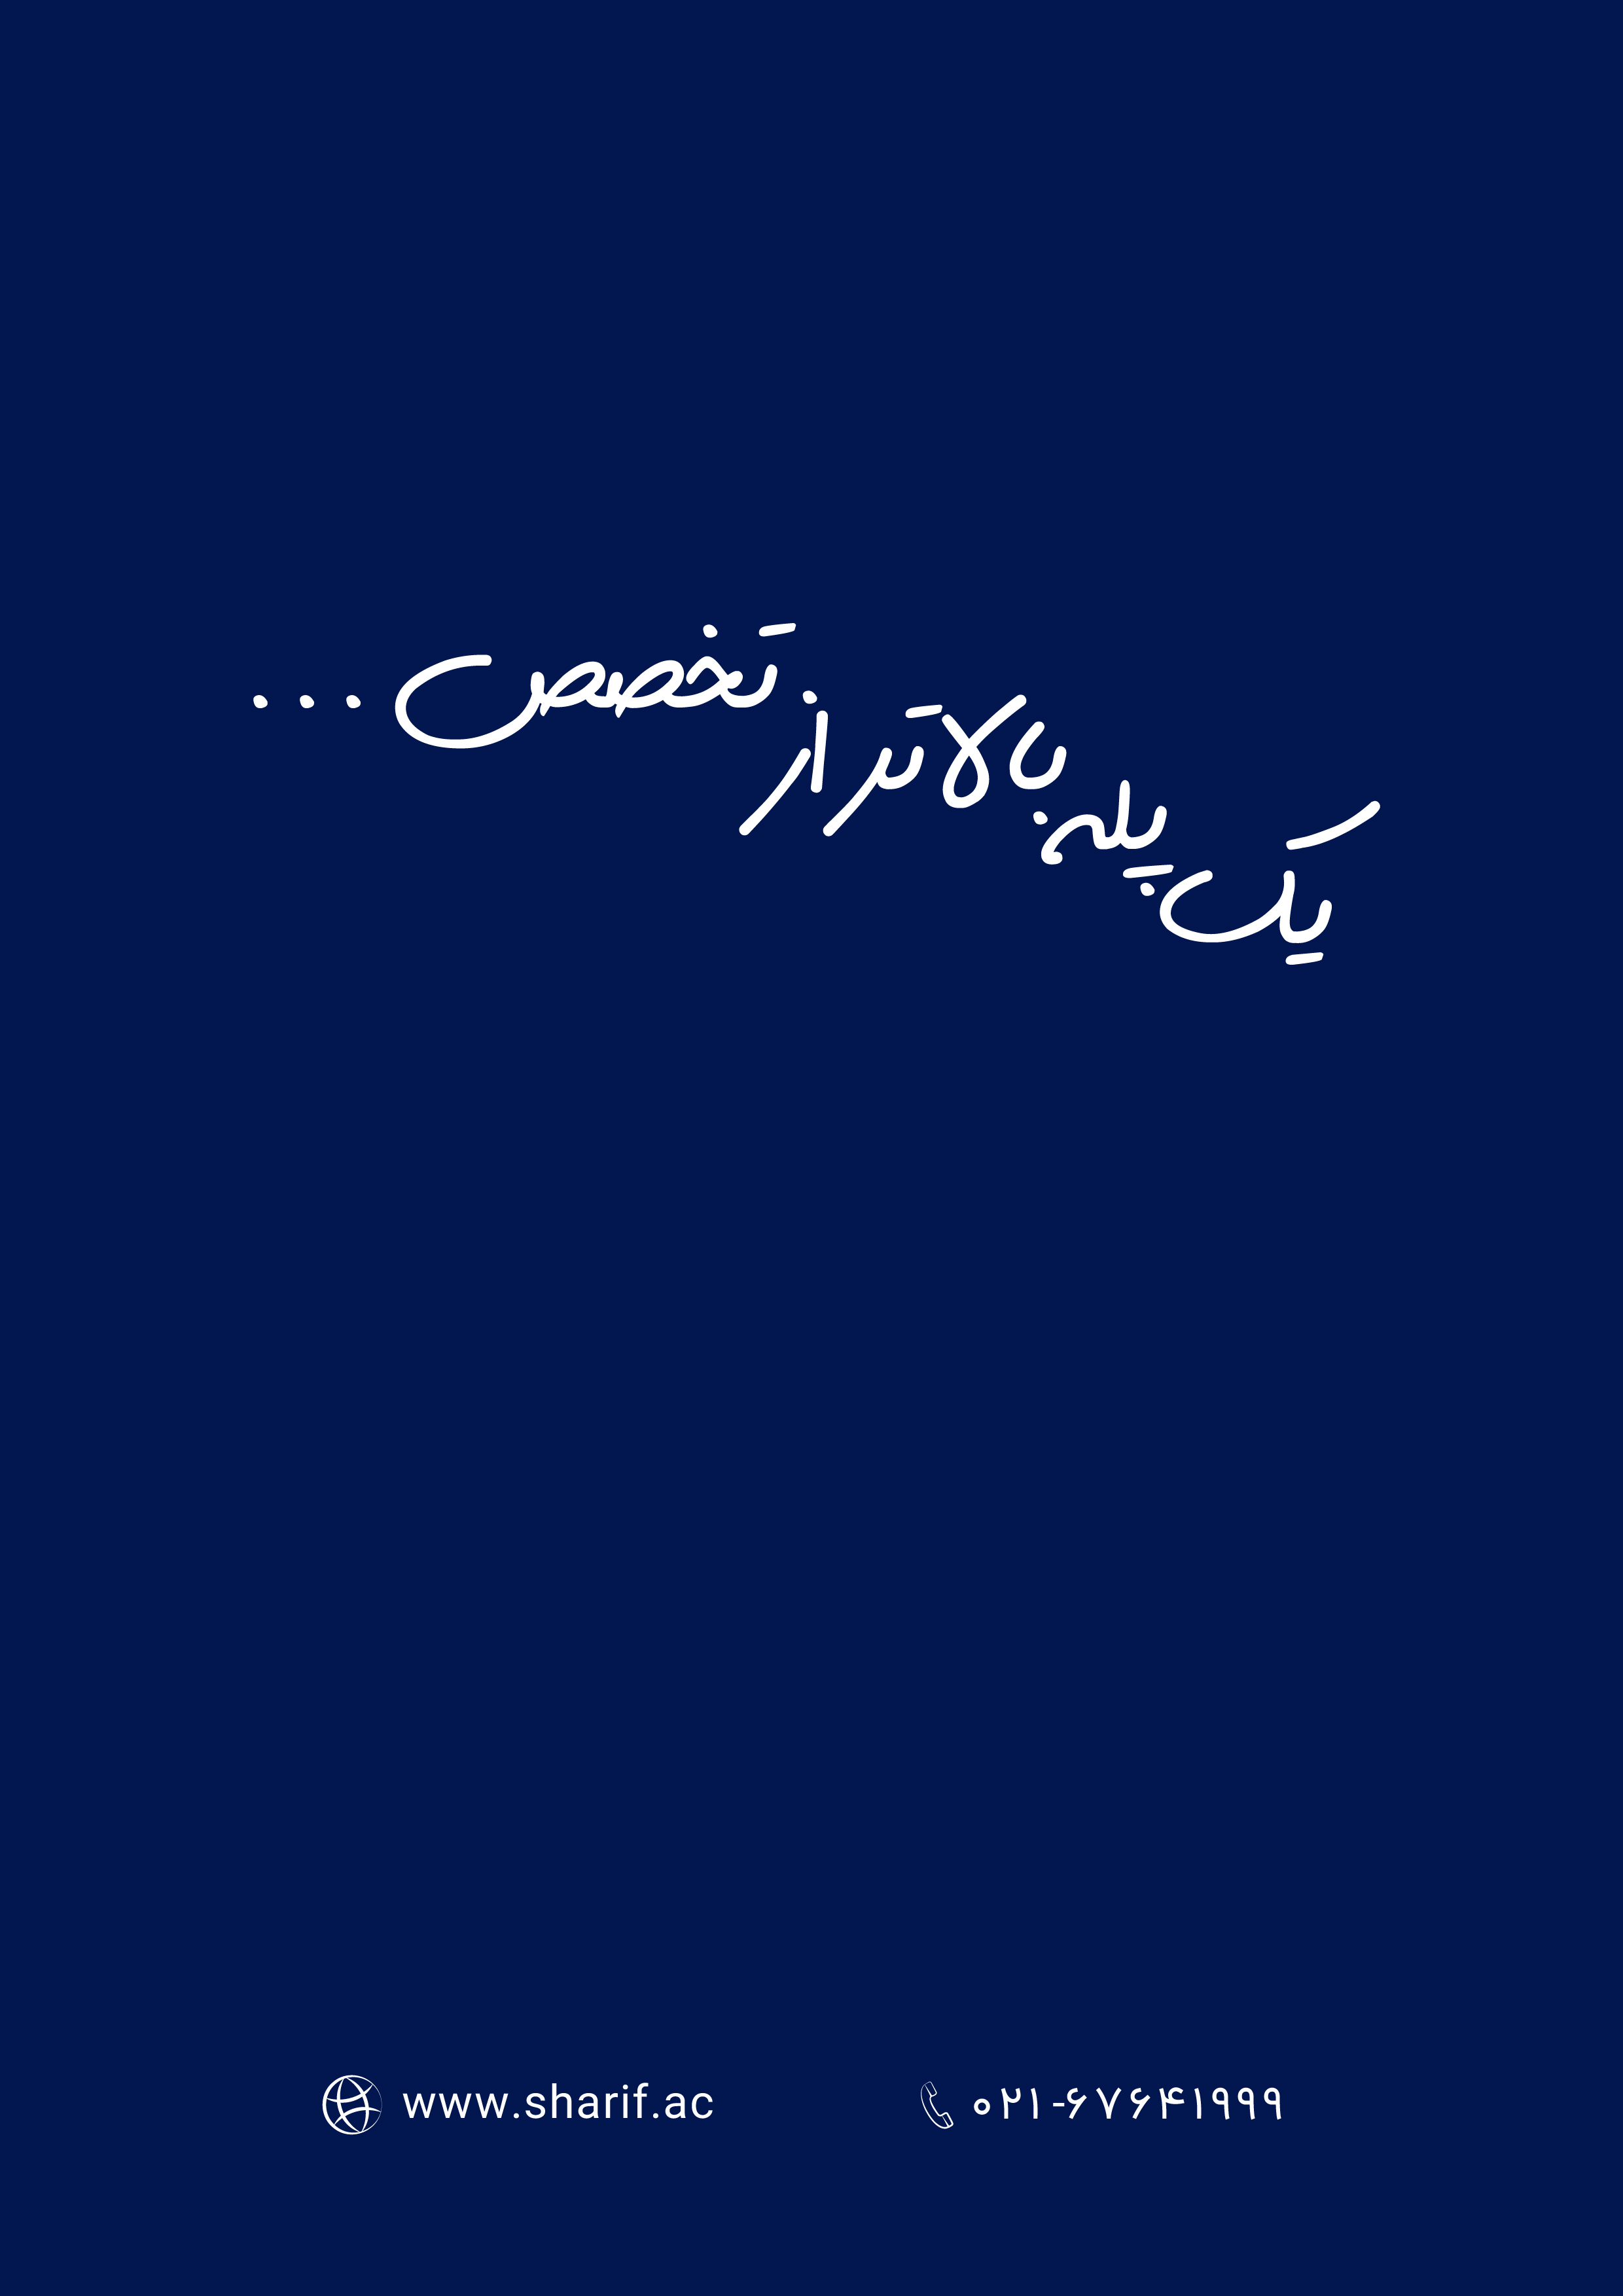 یک پله بالاتر از تخصص ...
www.sharif.ac
۰۲۱-۶۷۶۴۱۹۹۹